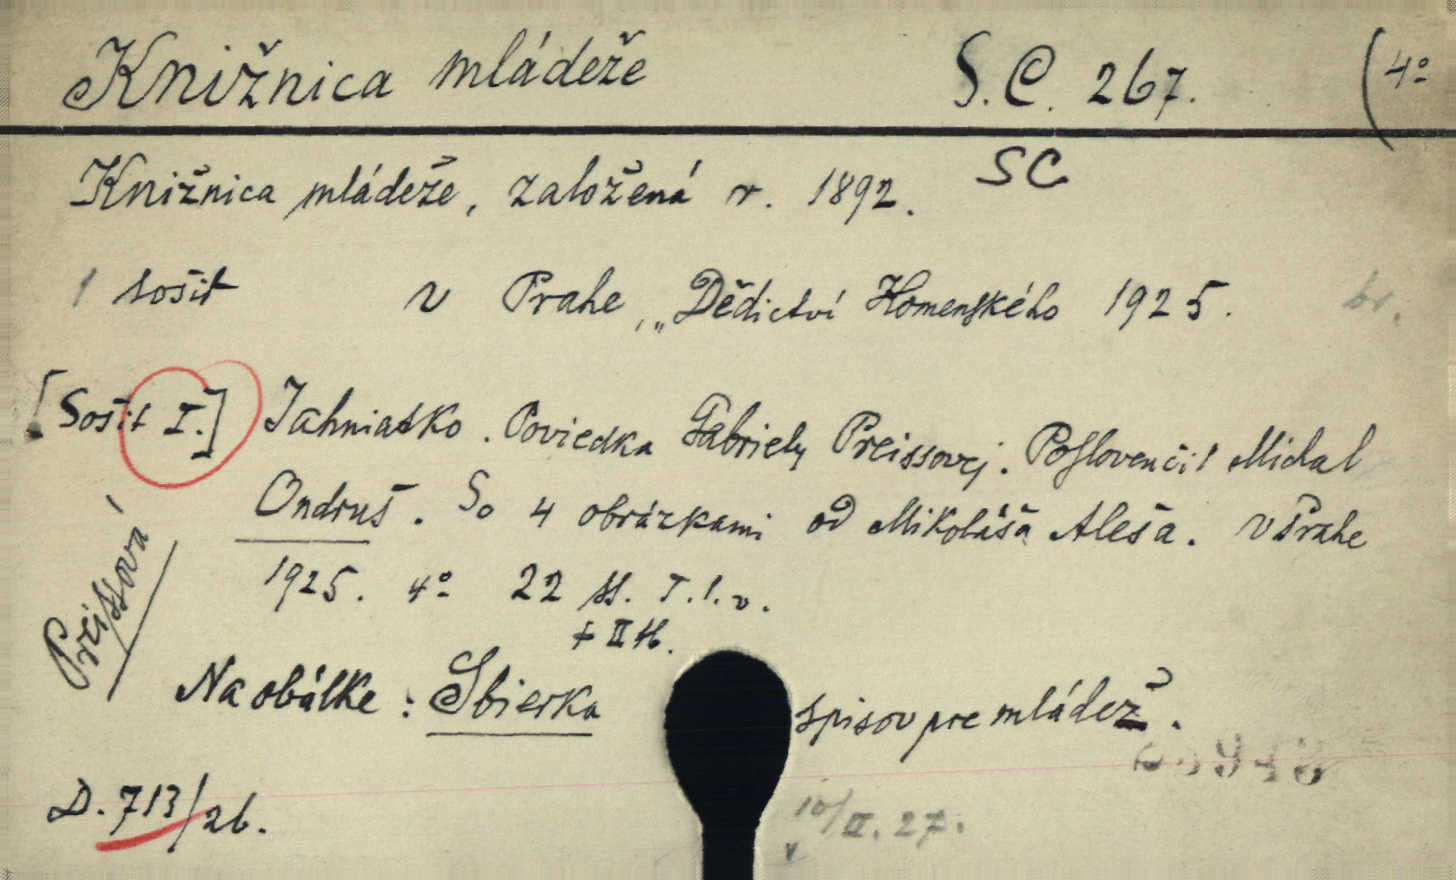 Knižnica mládeže S.C. 267. (4º
SC
Knižnica mládeže, založená r. 1892.
1 sošit v Prahe, „Dědictví Komenského 1925. br.
[Sošit I.] Jahniatko. Poviedka Gabriely Preissovej. Poslovenčil Michal
Ondruš. So 4 obrázkami od Mikoláša Aleša. V Prahe
1925. 4º 22 st. T.l.v.
+ II st.
Preissová
Na obálke: Sbierka spisov pre mládež.
D. 713/26.
10/II. 27.